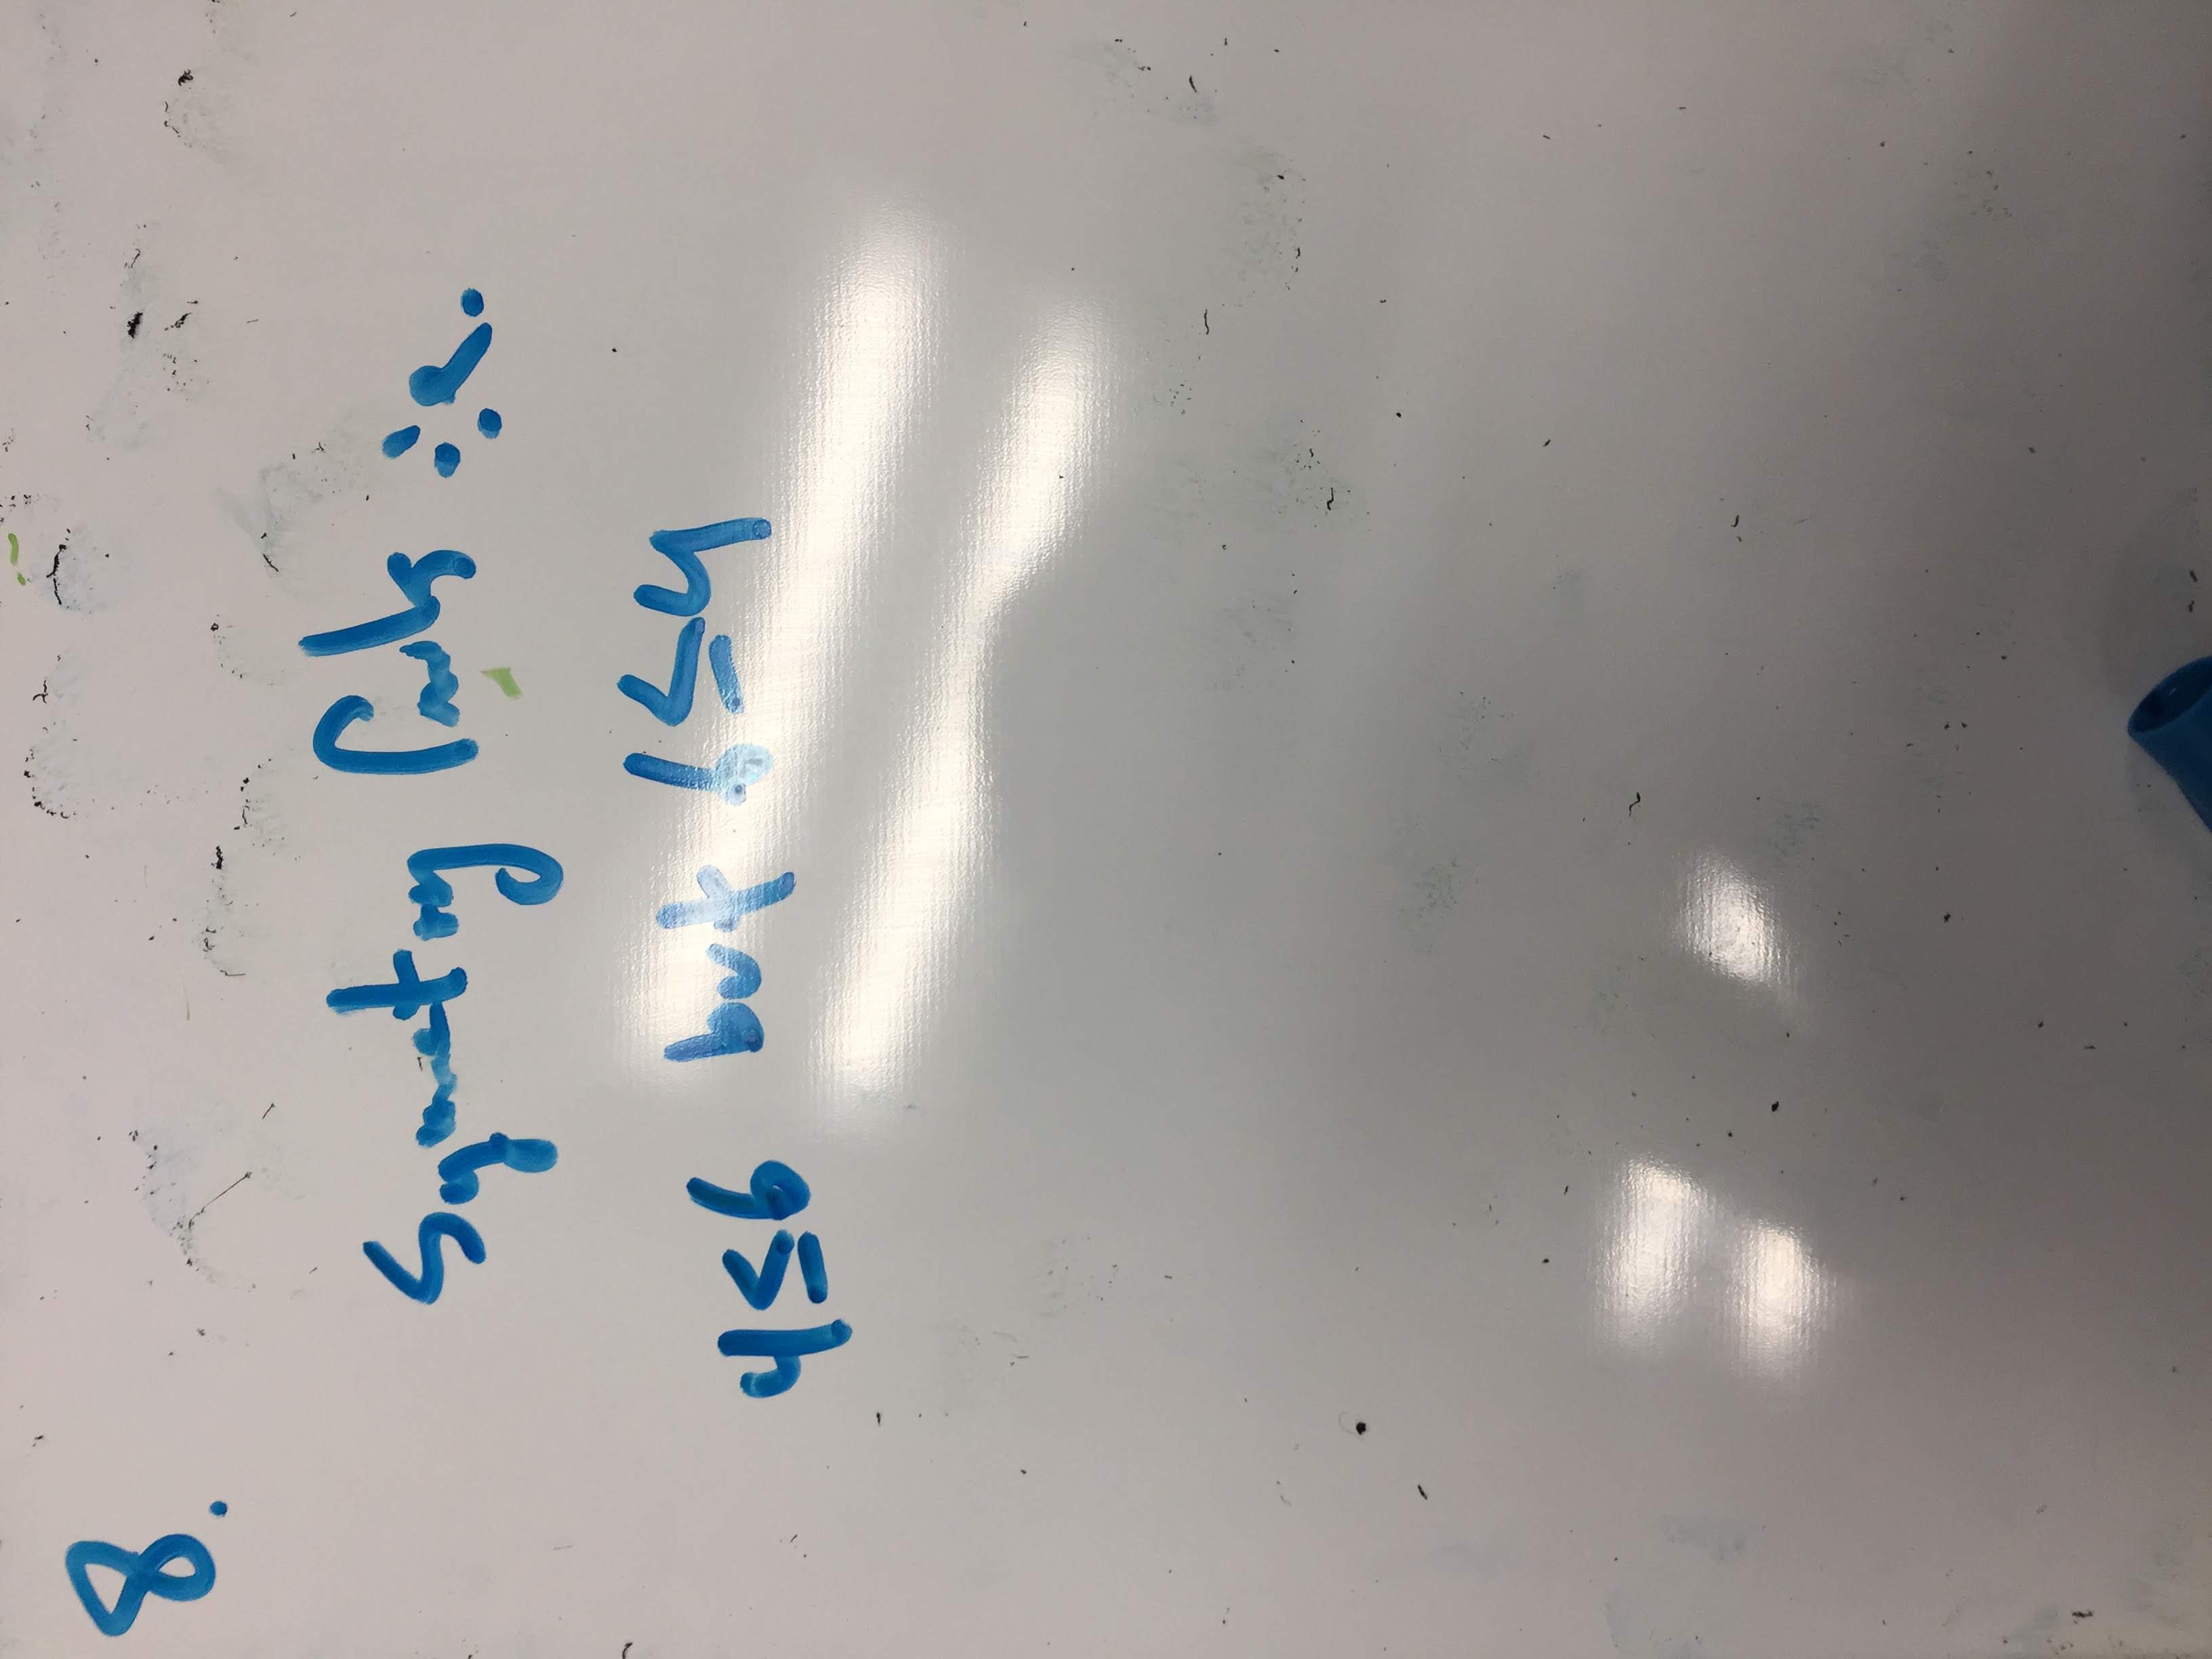 8.
Symmetry fails
4≤6 but 6≤4